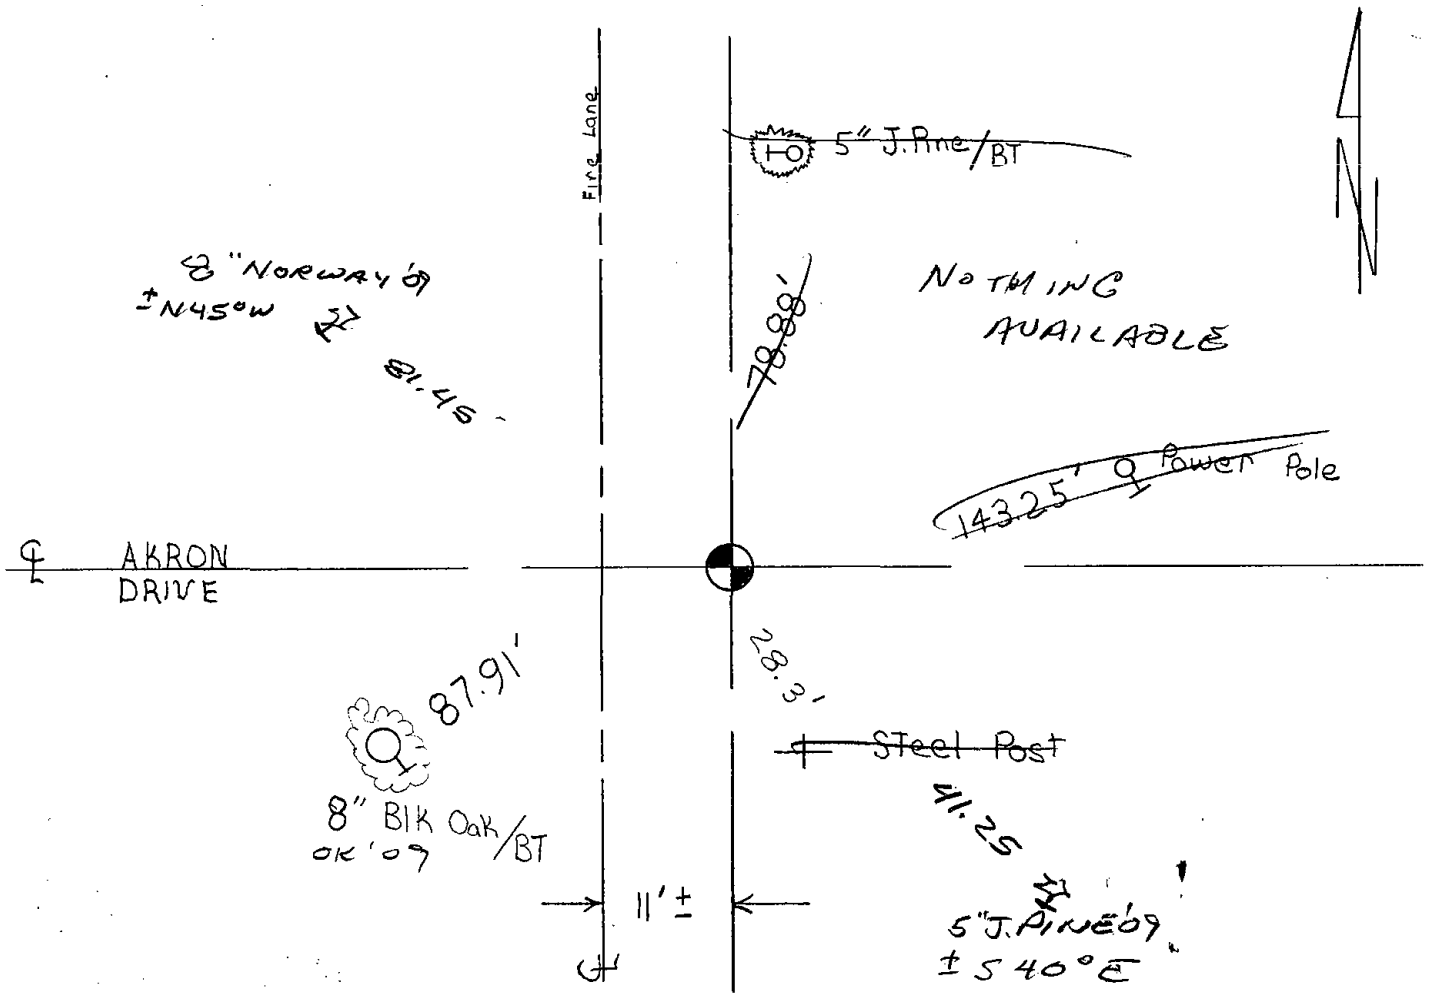 Fire Lane
5" J.Pine/BT
N
8" NORWAY '09
±N45°W
81.45'
78.88'
NOTHING
AVAILABLE
143.25' Power Pole
℄ AKRON
DRIVE
87.91'
28.3'
Steel Post
8" Blk Oak/BT
OK '09
41.25
11' ±
5" J. PINE '09
± S 40° E
℄